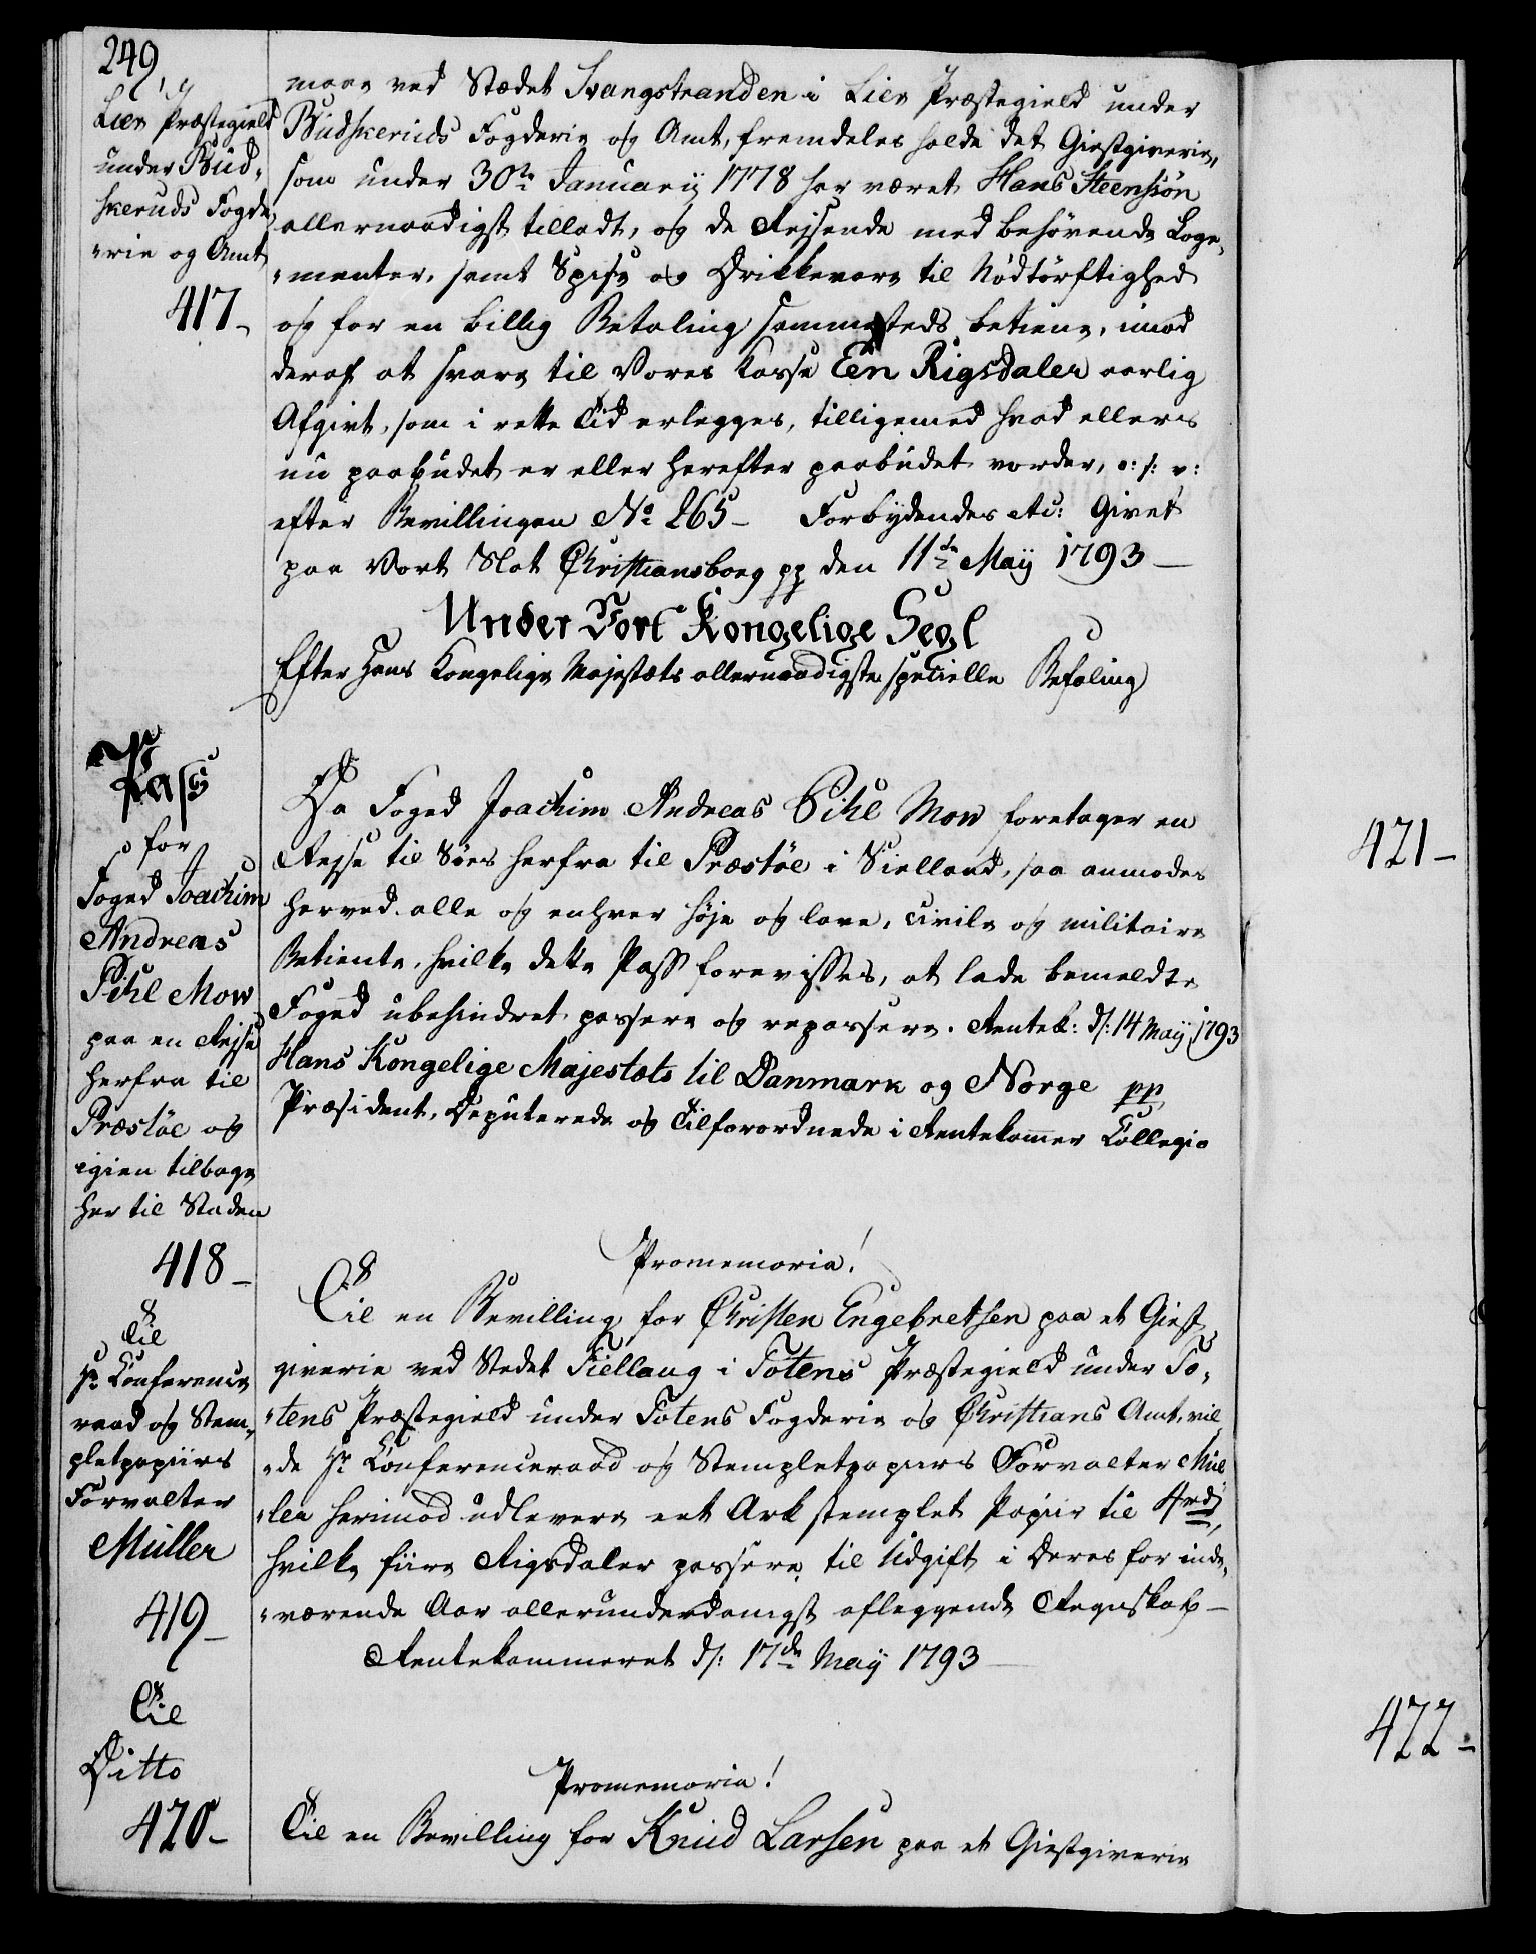 249,
Lier Præstegield
under Bud„
skeruds Fogde
„rie og Amt
417_
maae ved Stædet Svangstranden i Lier Præstegield under
Budskeruds Fogderie og Amt, fremdeles holde det Giestgiverie,
som under 30te Januarij 1778 har været Hans Steensøn
allernaadigst tilladt, og de Reisende med behøvende Loge„
„menter, samt Spise og Drikkevare til Nødtørftighed
og for en billig Betaling sammesteds betiene, imod
deraf at svare til Vores Kasse Een Rigsdaler aarlig
Afgivt, som i rette Tid erlegges, tilligemed hvad ellers
nu paabudet er eller herefter paabudet vorder, o: s: v:
efter Bevillingen No 265_ Forbydendes etc: Givet
paa Vort Slot Christiansborg pp den 11te Maij 1793_
Under Vort Kongelige Segl
Efter Hans Kongelige Majestæts allernaadigste specielle Befaling
Pass
for
Foged Joachim
Andreas
Pihl Mow
paa en Rejse
herfra til
Præstöe og
igien tilbage
her til Staden
418_
Da Foged Joachim Andreas Pihl Mow foretager en
Rejse til Søes herfra til Præstöe i Sielland, saa anmodes
herved alle og enhver høje og lave, civile og militaire
Betiente, hvilke dette Pass forevisses, at lade bemeldte
Foged ubehindret passere og repassere. Rentek: d: 14 Maij 1793
Hans Kongelige Majestæts til Danmark og Norge pp
Præsident, Deputerede og Tilforordnede i Rentekammer Collegio
Til
Hr Conference
raad og Stem„
pletpapiirs
Forvalter
Müller
419_
Promemoria!
Til en Bevilling for Christen Engebretsen paa et Giest„
giverie ved Stedet Fiellaug i Totens Præstegield under To„
„tens Præstegield under Totens Fogderie og Christians Amt, vil„
„de Hr Conferenceraad og Stempletpapiirs Forvalter Mül„
„ler herimod udlevere eet Ark stemplet Papiir til 4rd,
hvilke fiire Rigsdaler passere til Udgift i Deres for inde„
„værende Aar allerunderdanigst aflæggende Regnskab_
Rentekammeret d: 17de Maij 1793_
Til
Ditto
420_
Promemoria!
Til en Bevilling for Knud Larsen paa et Giestgiverie
421_
422_